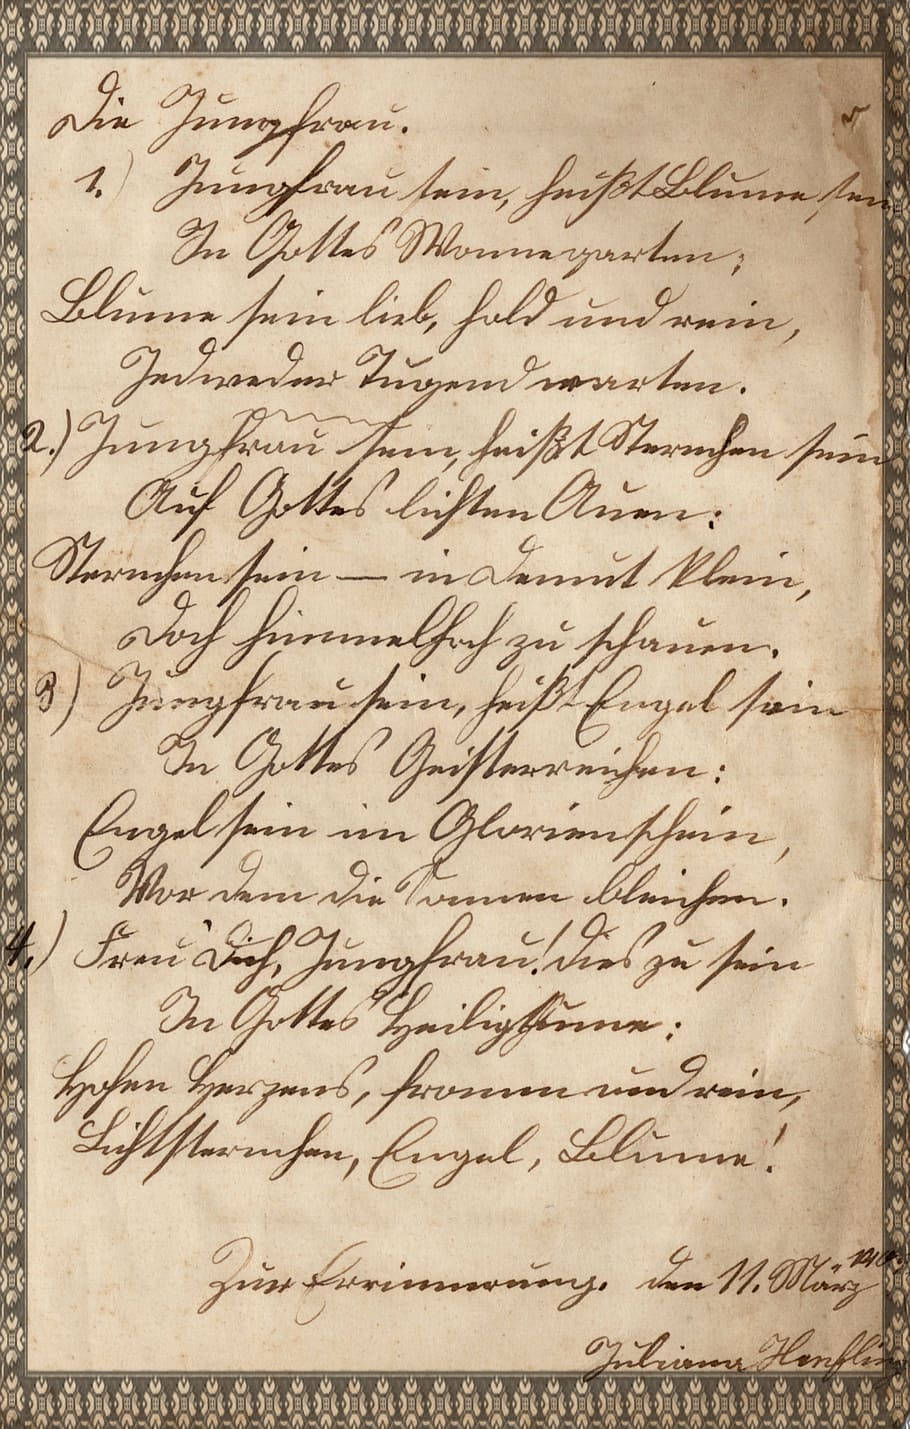 Die Jungfrau.
1.) Jungfrau sein, heißt Blume sein
In Gottes Wonnegarten;
Blume sein lieb, hold und rein,
Jedweder Tugend warten.
2.) Jungfrau sein, heißt Sternchen sein
Auf Gottes lichten Auen:
Sternchen sein — in Demut klein,
Doch himmelhoch zu schauen.
3) Jungfrau sein, heißt Engel sein
In Gottes Geisterreichen:
Engel sein im Glorienschein,
Vor dem die Sonnen bleichen.
4.) Freu' Dich, Jungfrau! dies zu sein
In Gottes Heiligtume:
Hohen Herzens, fromm und rein,
Lichtsternchen, Engel, Blume!
Zur Errinnerung. den 11. März
Juliana